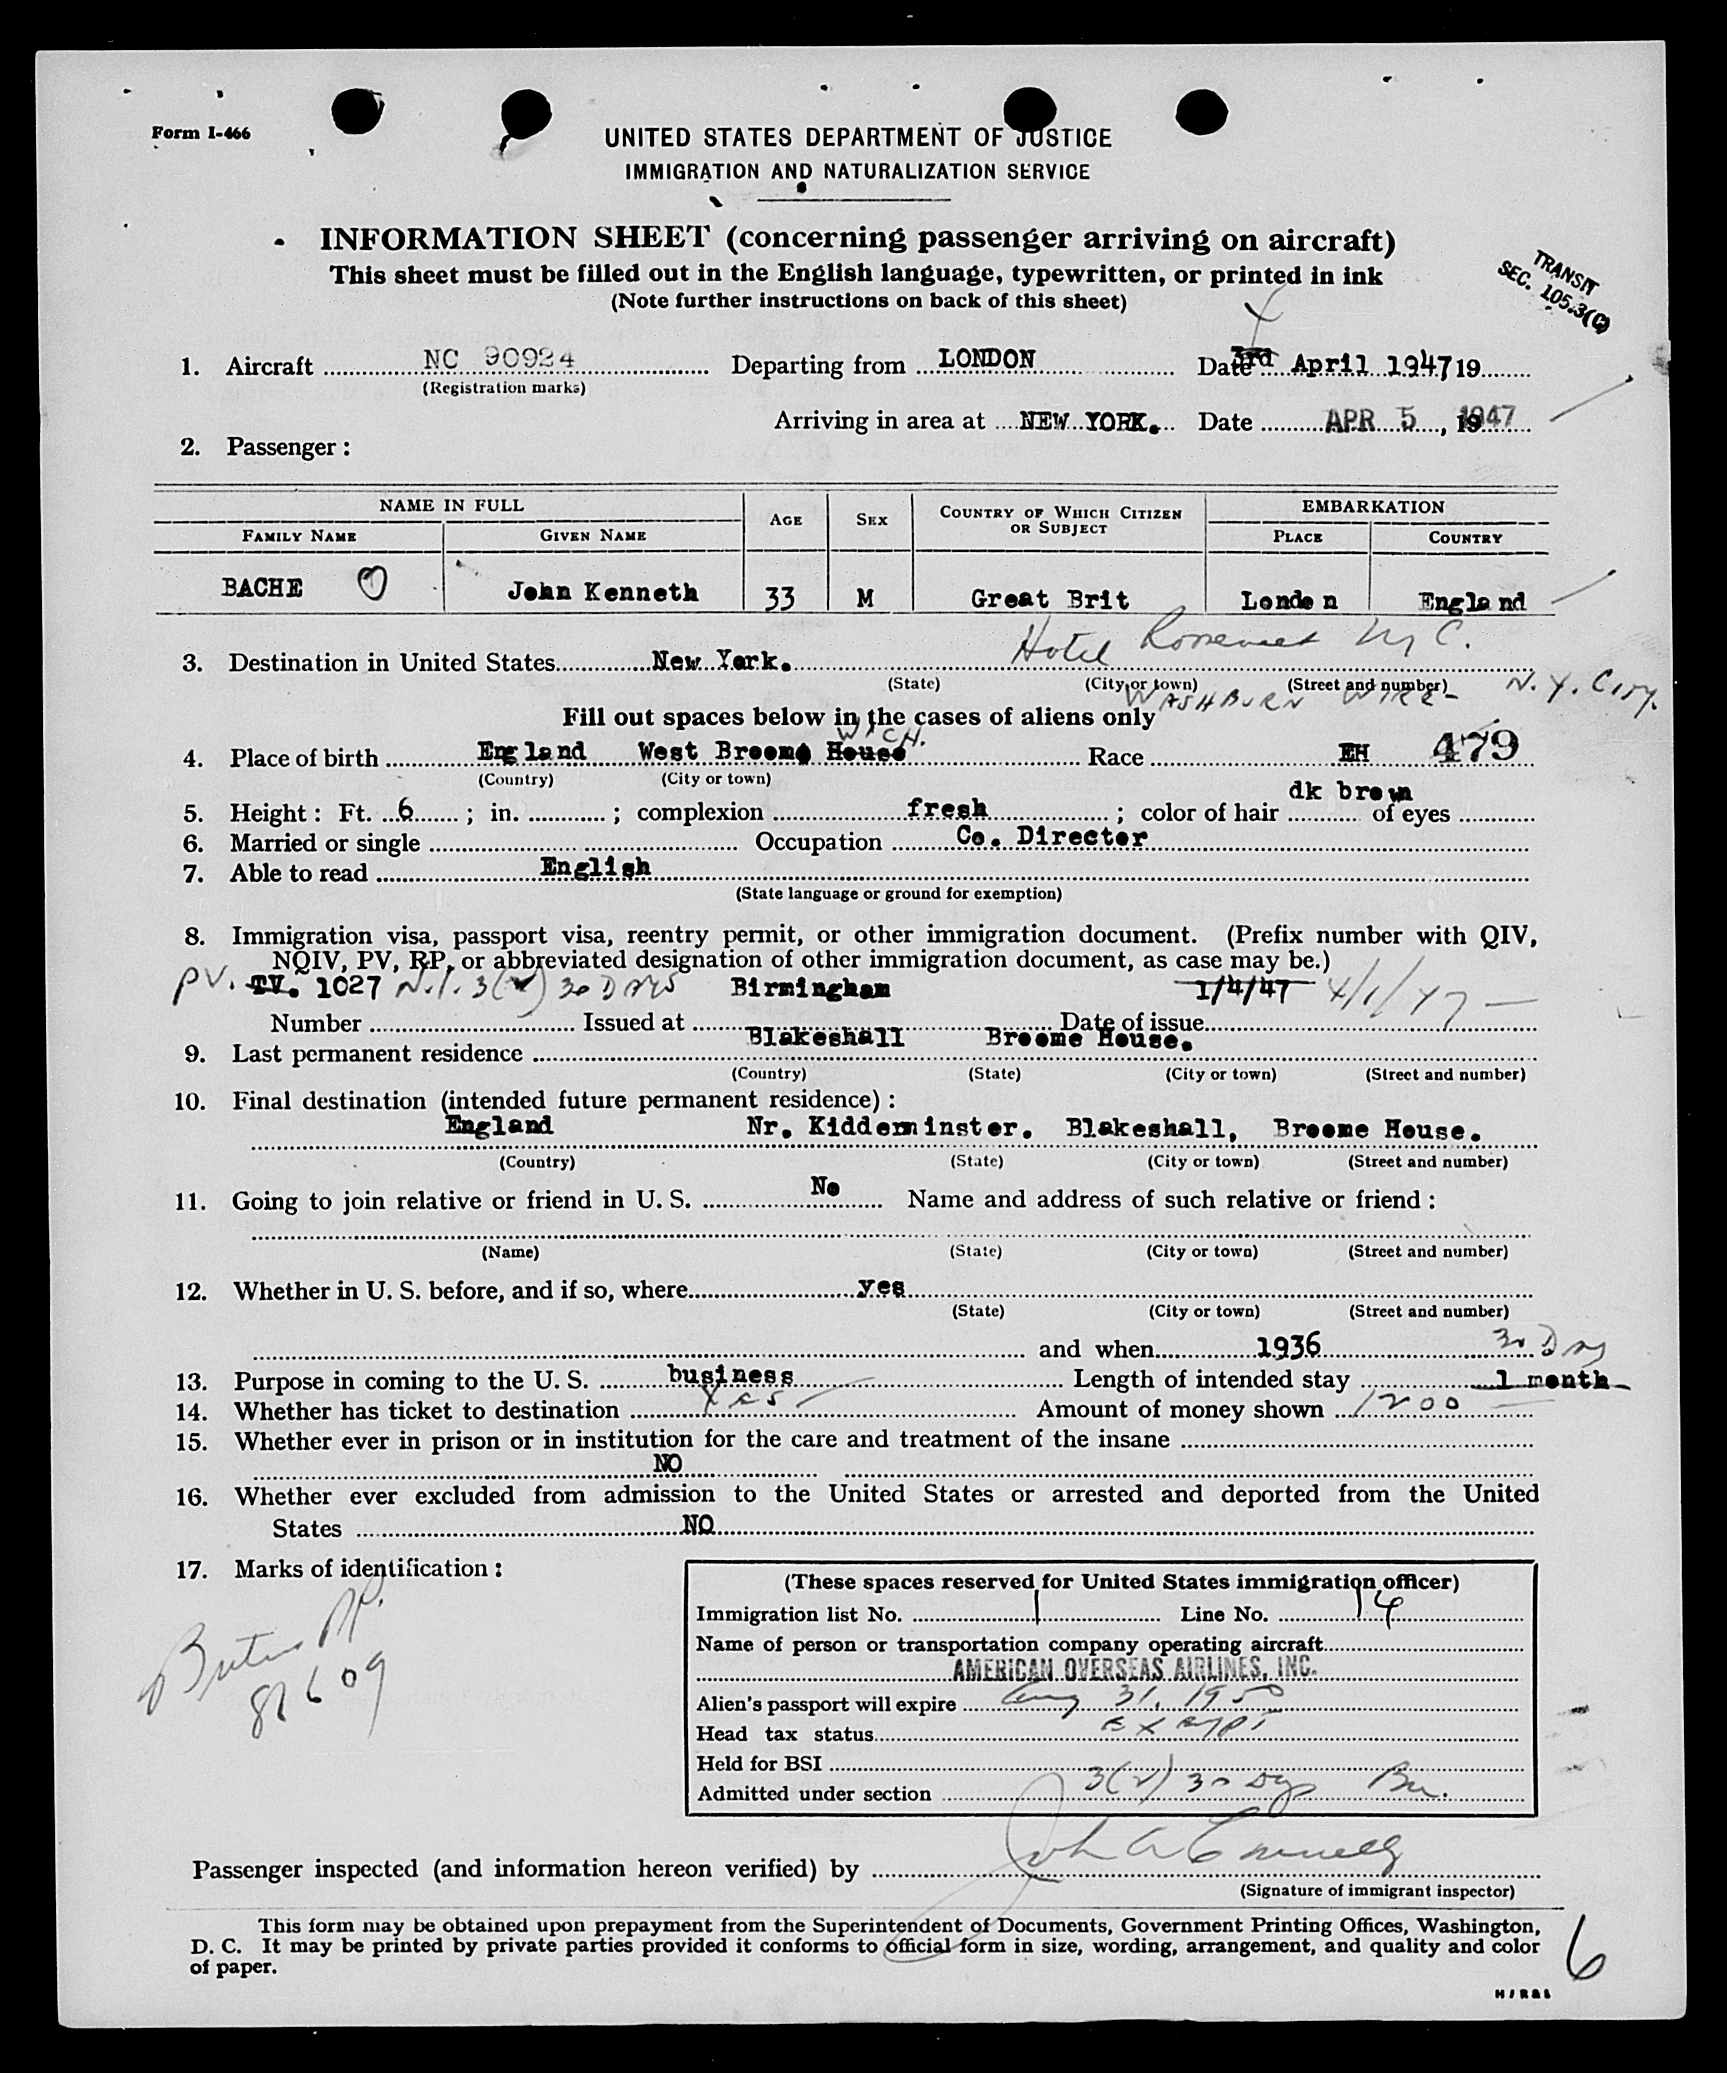 Form I-466
UNITED STATES DEPARTMENT OF JUSTICE
IMMIGRATION AND NATURALIZATION SERVICE
INFORMATION SHEET (concerning passenger arriving on aircraft)
This sheet must be filled out in the English language, typewritten, or printed in ink
(Note further instructions on back of this sheet)
TRANSIT
SEC. 105.3(C)
1. Aircraft NC 90924 Departing from LONDON Date 3rd April 1947 19
4
(Registration marks)
Arriving in area at NEW YORK. Date APR 5, 19 1947
2. Passenger:
NAME IN FULL AGE SEX COUNTRY OF WHICH CITIZEN OR SUBJECT EMBARKATION
FAMILY NAME GIVEN NAME PLACE COUNTRY
BACHE John Kenneth 33 M Great Brit London England
Hotel Roosevelt N.Y.C.
3. Destination in United States New York.
(State) (City or town) (Street and number)
WASHBURN WIRE - N.Y. City.
Fill out spaces below in the cases of aliens only
WICH.
4. Place of birth England West Broome House Race EH 479
(Country) (City or town)
dk brown
5. Height: Ft. 6; in. ; complexion fresh; color of hair of eyes
6. Married or single Occupation Co. Director
7. Able to read English
(State language or ground for exemption)
8. Immigration visa, passport visa, reentry permit, or other immigration document. (Prefix number with QIV,
NQIV, PV, RP, or abbreviated designation of other immigration document, as case may be.)
PV. TV. 1027 N.I. 3(2) 30 DAYS Birmingham 1/4/47 4/1/47 -
Number Issued at Date of issue
9. Last permanent residence Blakeshall Broome House.
(Country) (State) (City or town) (Street and number)
10. Final destination (intended future permanent residence):
England Nr. Kidderminster. Blakeshall, Broome House.
(Country) (State) (City or town) (Street and number)
11. Going to join relative or friend in U. S. No Name and address of such relative or friend:
(Name) (State) (City or town) (Street and number)
12. Whether in U. S. before, and if so, where yes
(State) (City or town) (Street and number)
and when 1936 30 Dys
13. Purpose in coming to the U. S. business Length of intended stay 1 month
14. Whether has ticket to destination Yes Amount of money shown 1200
15. Whether ever in prison or in institution for the care and treatment of the insane
NO
16. Whether ever excluded from admission to the United States or arrested and deported from the United
States NO
17. Marks of identification:
82609
(These spaces reserved for United States immigration officer)
Immigration list No. 1 Line No. 14
Name of person or transportation company operating aircraft
AMERICAN OVERSEAS AIRLINES, INC.
Alien's passport will expire Aug 31, 1950
Head tax status Exempt
Held for BSI
Admitted under section 3(2) 30 Dys
Passenger inspected (and information hereon verified) by John A Connelly
(Signature of immigrant inspector)
This form may be obtained upon prepayment from the Superintendent of Documents, Government Printing Offices, Washington,
D. C. It may be printed by private parties provided it conforms to official form in size, wording, arrangement, and quality and color
of paper.
6